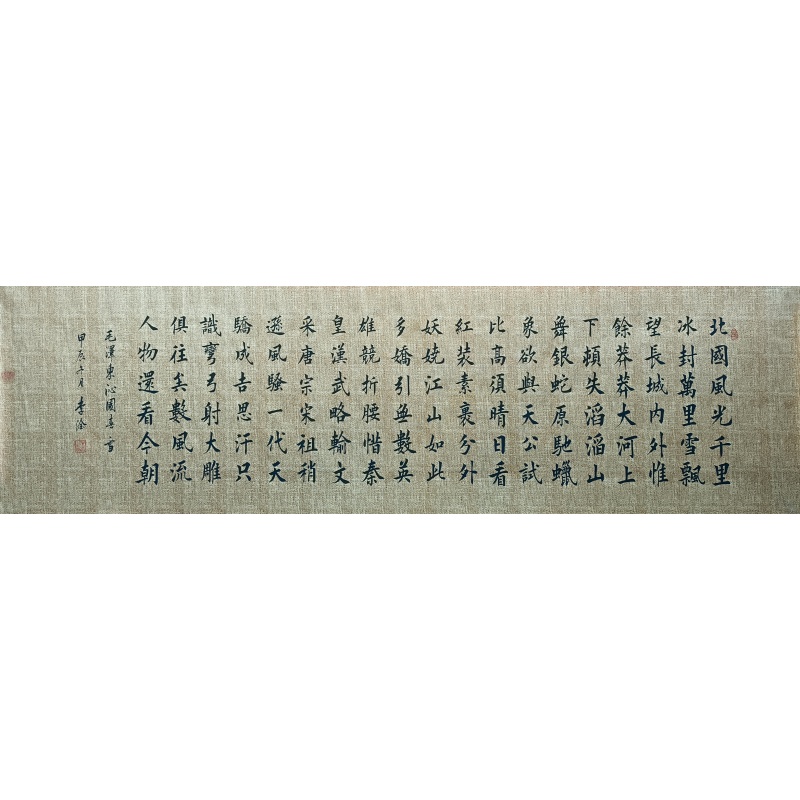 北國風光千里
冰封萬里雪飄
望長城內外惟
餘莽莽大河上
下頓失滔滔山
舞銀蛇原馳蠟
象欲與天公試
比高須晴日看
紅裝素裹分外
妖嬈江山如此
多嬌引無數英
雄競折腰惜秦
皇漢武略輸文
采唐宗宋祖稍
遜風騷一代天
驕成吉思汗只
識彎弓射大雕
俱往矣數風流
人物還看今朝
毛澤東沁園春雪
甲辰午月李